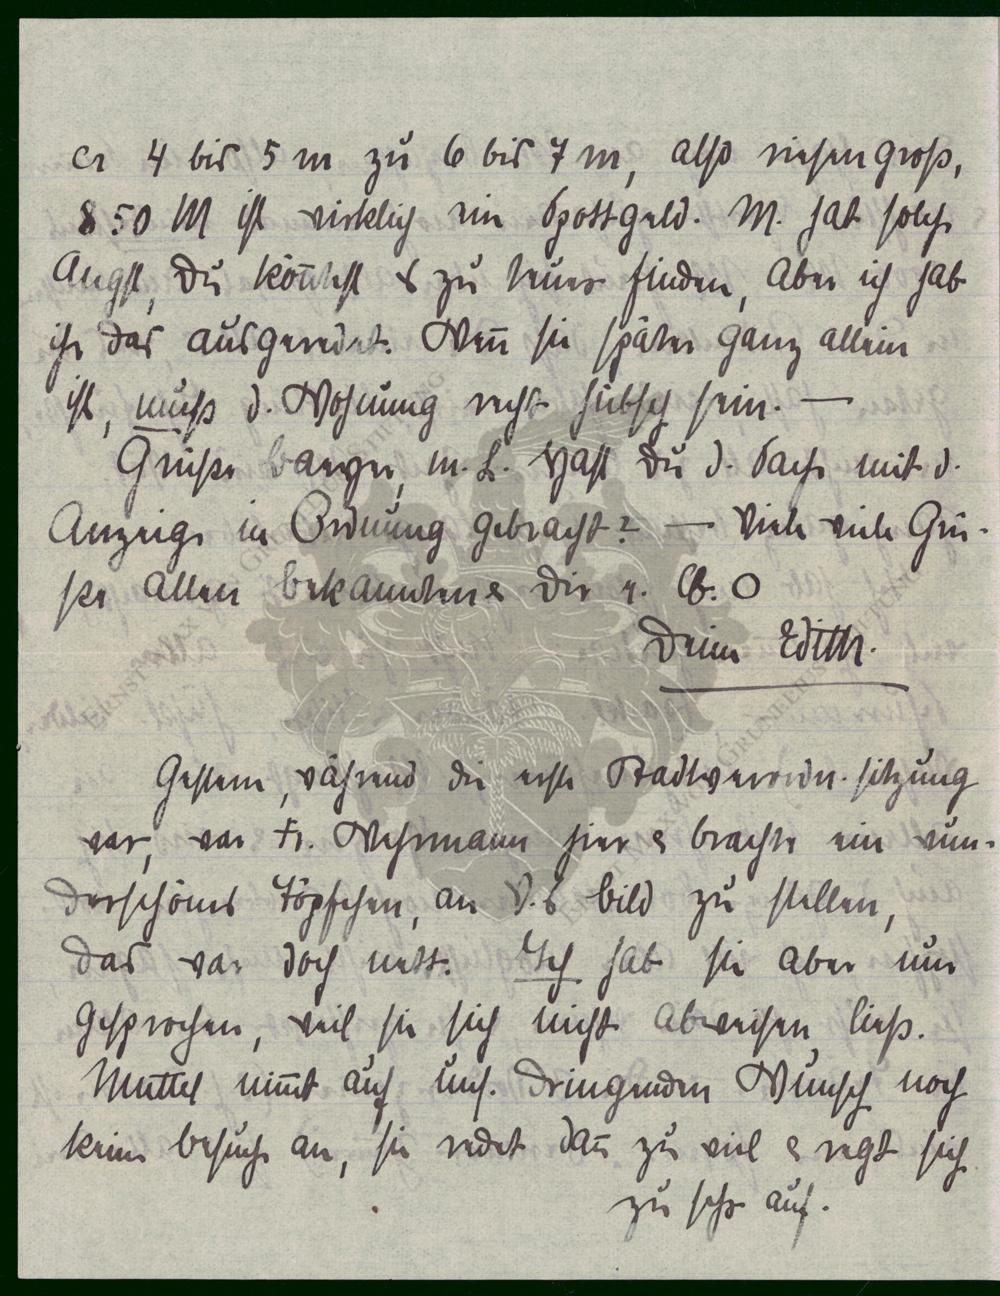 ca 4 bis 5 m zu 6 bis 7 m, also riesengroß,
850 M ist wirklich ein Spottgeld. M. hat solche
Angst, Du kön̄test es zu teuer finden, aber ich hab
ihr das ausgeredet. Wen̄ sie später ganz allein
ist, muß d. Wohnung recht hübsch sein. —
Grüße Baeyer, m. L. Hast Du d. Sache mit d.
Anzeige in Ordnung gebracht? — Viele viele Grü-
ße allen Bekannten & Dir v. lb. O
Deine Edith.
Gestern, während die erste Stadtverordn. sitzung
war, war Fr. Wehrmann hier & brachte ein wun-
derschönes Töpfchen, an V.s Bild zu stellen,
das war doch nett. Ich hab sie aber nur
gesprochen, weil sie sich nicht abweisen ließ.
Muttel nim̄t auf uns. dringenden Wunsch noch
keine Besuche an, sie redet dan̄ zu viel & regt sich
zu sehr auf.